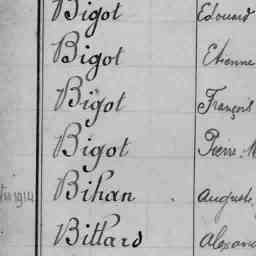 Bigot Edouard
Bigot Etienne
Bigot François
Bigot Pierre M
Bihan Auguste
Billard Alexan